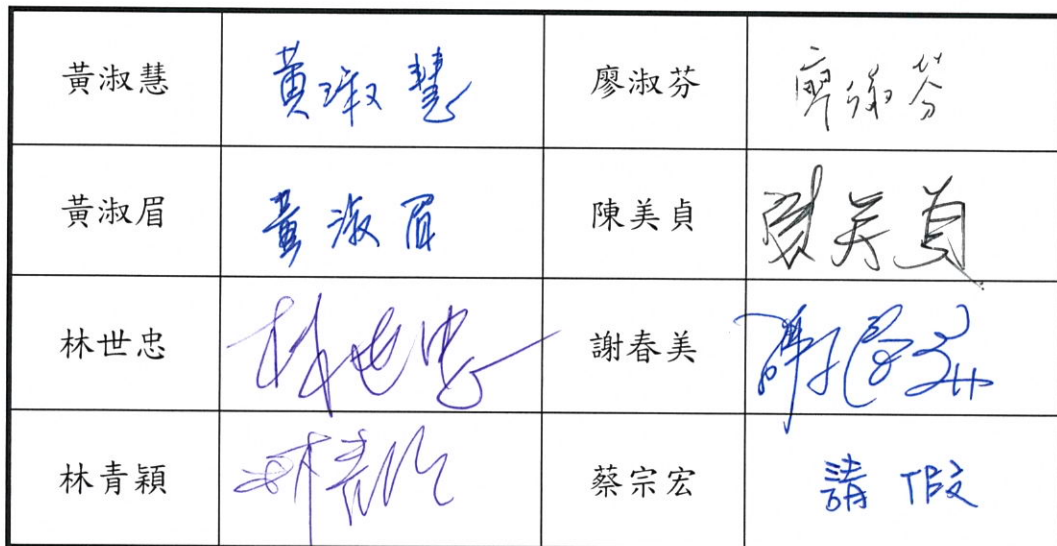 黃淑慧 黃淑慧 廖淑芬 廖淑芬
黃淑眉 黃淑眉 陳美貞 陳美貞
林世忠 林世忠 謝春美 謝春美
林青穎 林青穎 蔡宗宏 請假